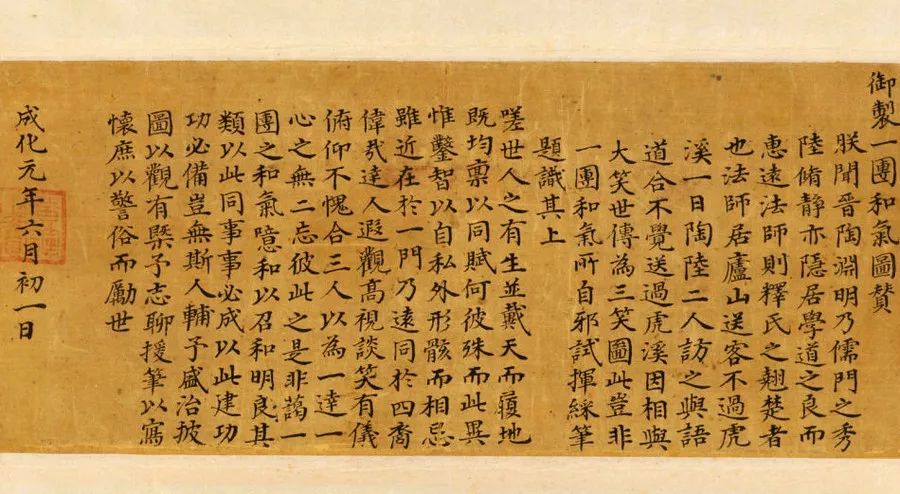 御製一團和氣圖贊
朕聞晉陶淵明乃儒門之秀
陸脩静亦隱居學道之良而
惠遠法師則釋氏之翹楚者
也法師居廬山送客不過虎
溪一日陶陸二人訪之與語
道合不覺送過虎溪因相與
大笑世傳為三笑圖此豈非
一團和氣所自邪試揮綵筆
題識其上
嗟世人之有生並戴天而履地
既均禀以同賦何彼殊而此異
惟鑿智以自私外形骸而相忌
雖近在於一門乃遠同於四裔
偉㦲達人遐觀高視談笑有儀
俯仰不愧合三人以為一達一
心之無二忘彼此之是非藹一
團之和氣噫和以召和明良其
類以此同事事必成以此建功
功必備豈無斯人輔予盛治披
圖以觀有槩予志聊援筆以寫
懷庶以警俗而勵世
成化元年六月初一日